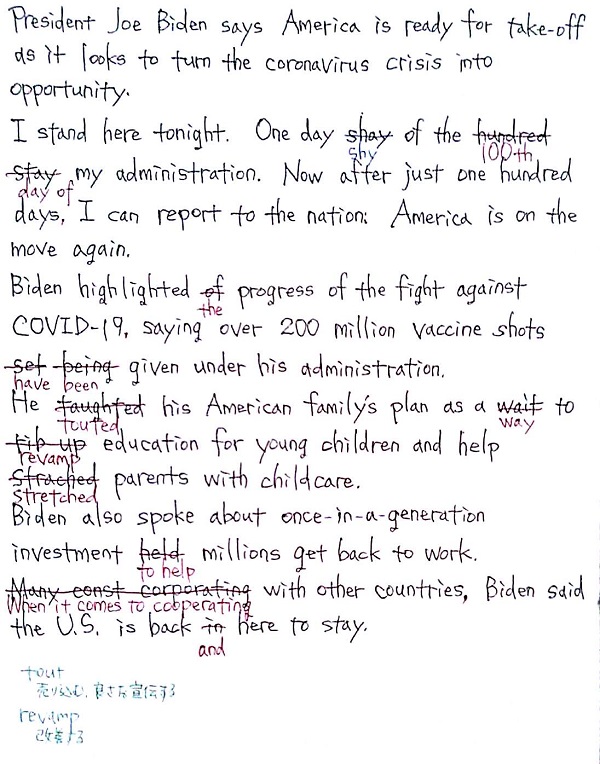 President Joe Biden says America is ready for take-off
as it looks to turn the coronavirus crisis into
opportunity.
I stand here tonight. One day shay of the hundred
shy 100th
stay my administration. Now after just one hundred
day of
days, I can report to the nation: America is on the
move again.
Biden highlighted of progress of the fight against
the
COVID-19, saying over 200 million vaccine shots
set being given under his administration.
have been
He taughted his American family's plan as a wait to
touted way
tib up education for young children and help
revamp
strached parents with childcare.
stretched
Biden also spoke about once-in-a-generation
investment held millions get back to work.
to help
Many const corporating with other countries, Biden said
When it comes to cooperating
the U.S. is back in here to stay.
and
tout
売り込む、良さを宣伝する
revamp
改善する